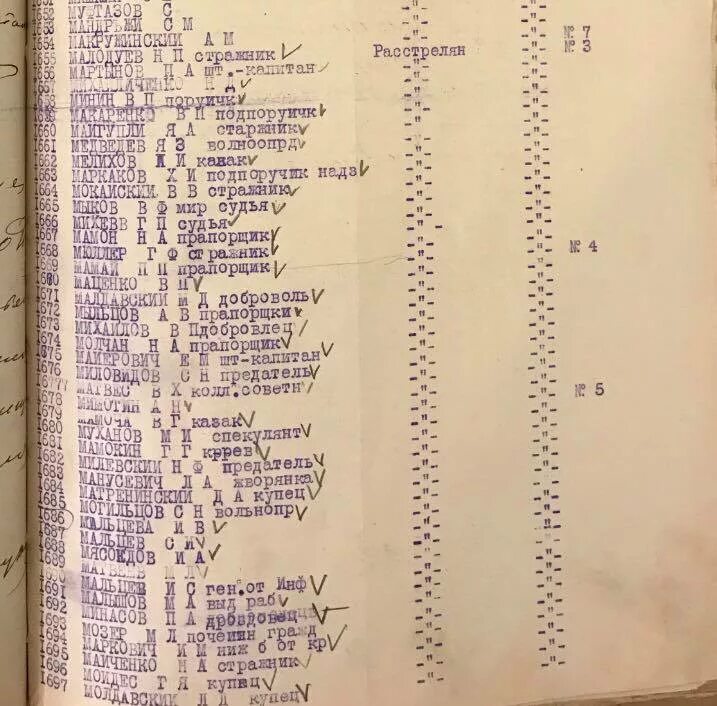 1652 МУРТАЗОВ С
1653 С М
1654 МАКРУЖИНСКИЙ А М -"- № 7
1655 МАЛОДУЕВ Н П стражник Расстрелян -"- № 3
1656 МАРТЫНОВ П А шт.-капитан -"- -"-
1657 Н Д -"- -"-
1658 МИНИН В П поручик -"- -"-
1659 МАКАРЕНКО В П подпоручик -"- -"-
1660 МАИГУПЛИ Я А старжник -"- -"-
1661 МЕДВЕДЕВ Я З волноопрд -"- -"-
1662 МЕЛИХОВ И казак -"- -"-
1663 МАРКАКОВ Х И подпоручик надз -"- -"-
1664 МОКАИСКИЙ В В стражник -"- -"-
1665 МЫКОВ В Ф мир судья -"- -"-
1666 МИХЕЕВ Г П судья -"- -"-
1667 МАМОН Н А прапорщик -"- -"-
1668 МЮЛЛЕР Г Ф стражник -"- -"- № 4
1669 МАМАЙ П П прапорщик -"- -"-
1670 МАЦЕНКО В П -"- -"-
1671 МАЛДАВСКИЙ М Д доброволь -"- -"-
1672 МЫЛЬЦОВ А В прапорщки -"- -"-
1673 МИХАИЛОВ В Пдобровлец -"- -"-
1674 МОЛЧАН Н А прапорщик -"- -"-
1675 МАИЕРОВИЧ Е М шт-капитан -"- -"-
1676 МИЛОВИДОВ С Н предатель -"- -"-
1677 МАТВЕС В Х колл.советн -"- -"- № 5
1678 МИМОТИН А Н -"- -"-
1679 МАМОЧА В Г казак -"- -"-
1680 МУХАНОВ М И спекулянт -"- -"-
1681 МАМОКИН Г Г кррев -"- -"-
1682 МИЛЕВСКИЙ Н Ф предатель -"- -"-
1683 МАНУСЕВИЧ Л А жворянка -"- -"-
1684 МАТРЕНИНСКИЙ Д А купец -"- -"-
1685 МОГИЛЬЦОВ С Н вольнопр -"- -"-
1686 МАЛЬЦЕВА И В -"- -"-
1687 МАЛЬЦЕВ С И -"- -"-
1688 МЯСОЕДОВ И А -"- -"-
1689 МАТВЕЕВ М Л -"- -"-
1690 МАЛЬЦЕВ И С ген.от Инф -"- -"-
1691 МАЛЫШОВ М А выд раб -"- -"-
1692 МИНАСОВ П А дроздовец -"- -"-
1693 МОЗЕР М Л почеинн гражд -"- -"-
1694 МАРКОВИЧ И М ниж б от кр -"- -"-
1695 МАИЧЕНКО Н А стражник -"- -"-
1696 МОИДЕС Г Я купец -"- -"-
1697 МОЛДАВСКИЙ Л Л купец